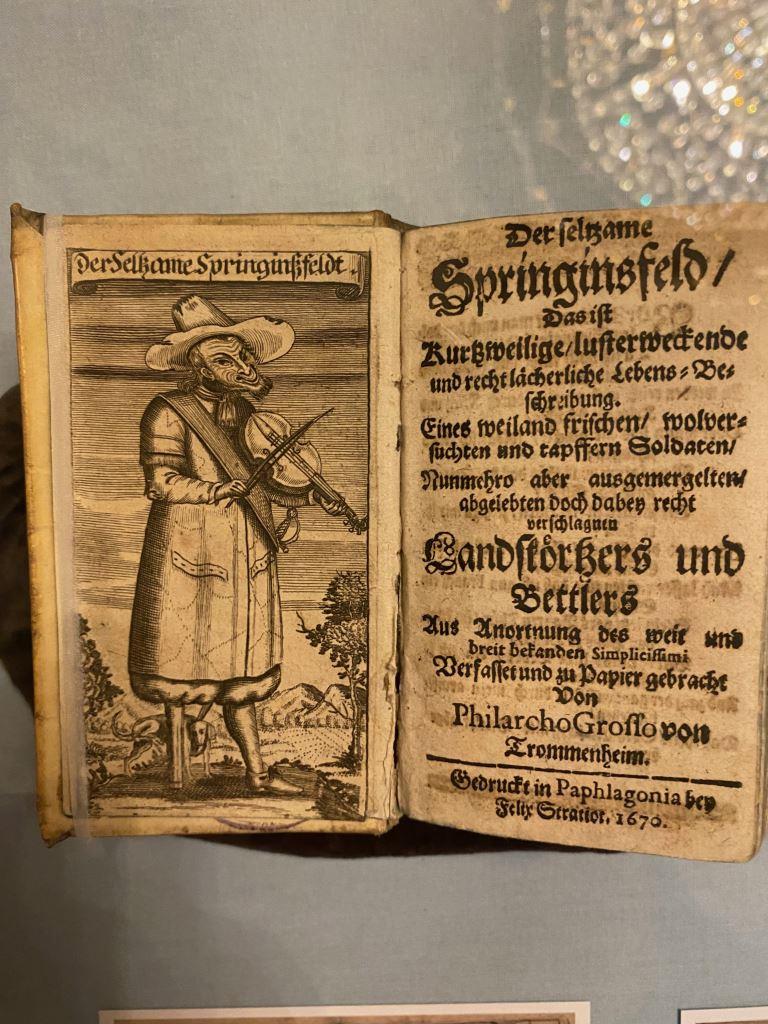 Der Seltzame Springinßfeldt.
Der seltzame
Springinsfeld/
Das ist
Kurtzweilige/lusterweckende
und recht lächerliche Lebens-Be-
schreibung.
Eines weiland frischen/ wolver-
suchten und tapffern Soldaten/
Nunmehro aber ausgemergelten/
abgelebten doch dabey recht
verschlagnen
Landstörtzers und
Bettlers
Aus Anortnung des weit und
breit bekanden Simplicissimi
Verfasset und zu Papier gebracht
Von
Philarcho Grosso von
Trommenheim.
Gedruckt in Paphlagonia bey
Felix Stratiot. 1670.